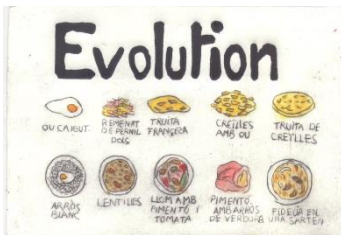 Evolution
OU CAIGUT
REMENAT
DE PERNIL
DOLÇ
TRUITA
FRANCESA
CREÏLLES
AMB OU
TRUITA DE
CREÏLLES
ARRÒS
BLANC
LENTILLES
LLOM AMB
PIMENTÓ I
TOMATA
PIMENTÓ
AMB ARRÒS
DE VERDURA
FIDEUÀ EN
UNA SARTÉN